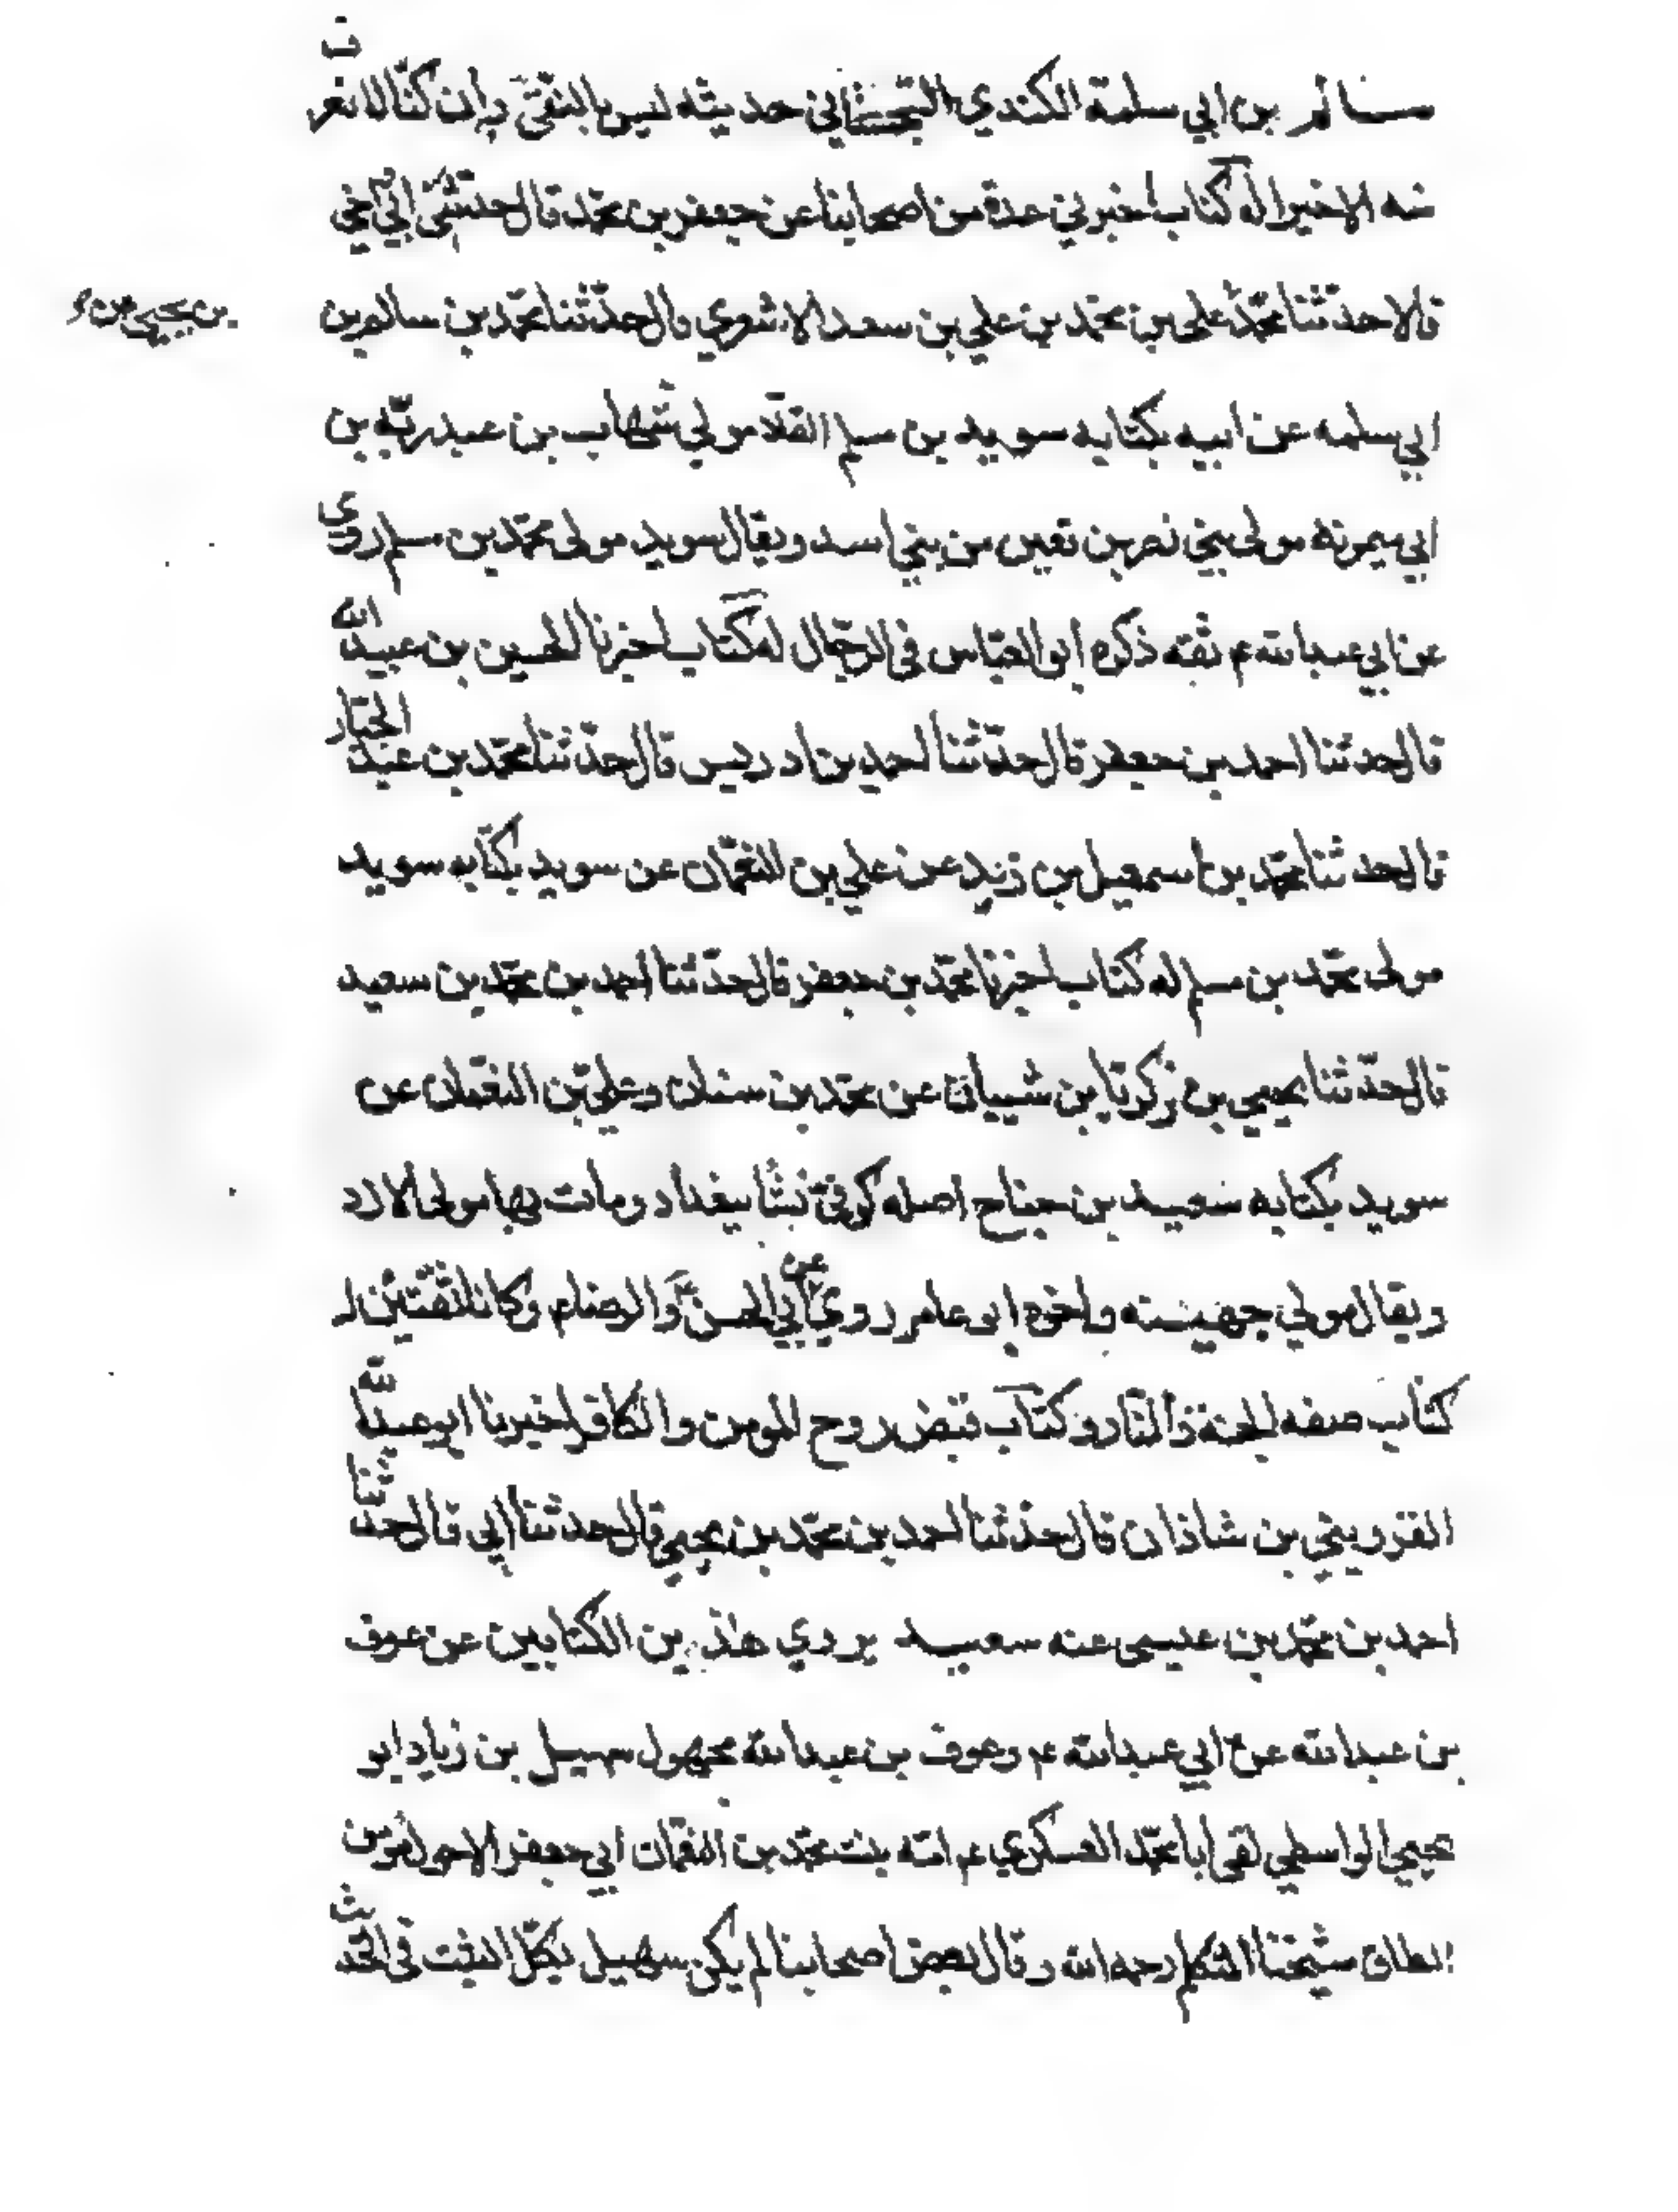 سالم بن ابي سلمة الكندي السجستاني حديثه ليس بالنقي وان كنا لا نعرف
منه الا خيرا له كتاب اخبرني عدة من اصحابنا عن جعفر بن محمد قال حدثني ابي واخي
قالا حدثنا محمد بن يحيى عن علي بن محمد بن علي بن سعد الاشعري قال حدثنا محمد بن سالم بن
ابي سلمه عن ابيه بكتابه سويد بن سلم القلا مولى شهاب بن عبد ربه بن
ابي ميمونة مولى بني نصر بن قعين من بني اسد ويقال سويد مولى محمد بن مسلم روى
عن ابي عبد الله ع ثقه ذكره ابو العباس في الرجال له كتاب اخبرنا الحسين بن عبيد الله
قال حدثنا احمد بن جعفر قال حدثنا احمد بن ادريس قال حدثنا محمد بن عبد الجبار
قال حدثنا محمد بن اسمعيل بن علي بن النعمان عن سويد بكتابه سويد
مولى محمد بن مسلم له كتاب اخبرنا محمد بن جعفر قال حدثنا احمد بن محمد بن سعيد
قال حدثنا يحيى بن زكريا بن شيبان عن محمد بن سنان وعلي بن النعمان عن
سويد بكتابه سعيد بن جناح اصله كوفي نشا ببغداد ومات بها مولى الازد
ويقال مولى جهينه واخوه ابو عامر روى عن ابي الحسن والرضا ع وكانا ثقتين له
كتاب صفه الجنة والنار وكتاب قبض روح المومن والكافر اخبرنا ابو عبد الله
القزويني بن شاذان قال حدثنا احمد بن محمد بن يحيى قال حدثنا ابي قال حدثنا
احمد بن محمد بن عيسى عنه سعيد يروي هاذين الكتابين عن عوف
بن عبد الله عن ابي عبد الله ع وعوف بن عبد الله مجهول سهيل بن زياد ابو
يحيى الواسطي لقى ابا محمد العسكري ع امه بنت محمد بن النعمان ابي جعفر الاحول مومن
الطاق شيخنا المتكلم رحمه الله وقال بعض اصحابنا لم يكن سهيل بكل الثبت في الحديث